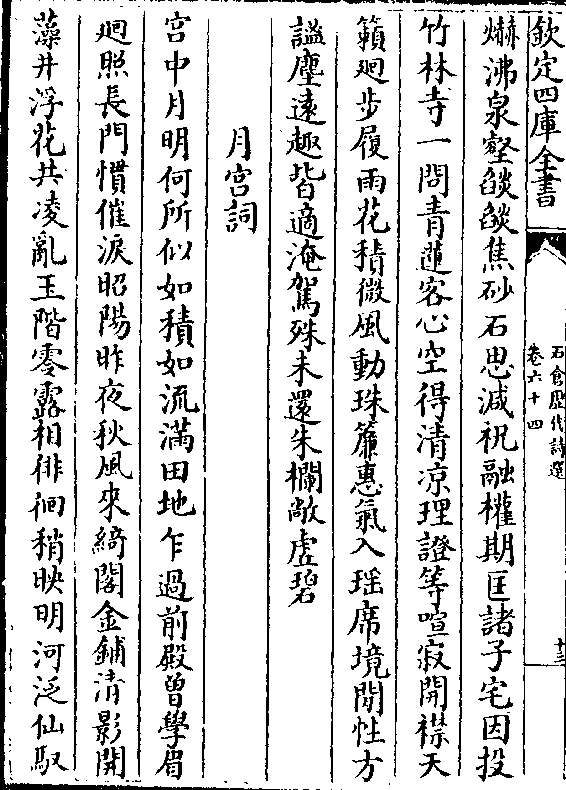 欽定四庫全書
石倉歴代詩選
卷六十四
十三
爀沸泉壑燄燄焦砂石思減祝融權期匡諸子宅因投
竹林寺一問青蓮客心空得清凉理證等喧寂開襟天
籟廻步履雨花積微風動珠簾惠氣入瑶席境閒性方
謐塵遠趣皆適淹駕殊未還朱欄敞虚碧
月宫詞
宫中月明何所似如積如流滿田地乍過前殿曽學眉
廻照長門慣催淚昭陽昨夜秋風來綺閣金鋪清影開
藻井浮花共凌亂玉階零露相徘徊稍映明河泛仙馭